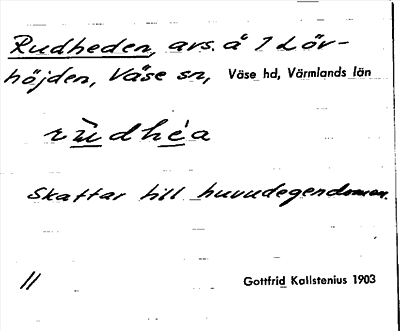 Rudheden, avs. å 1 Löv-
höjden, Väse sn, Väse hd, Värmlands län
rù̲dhé̲a
Skattar till huvudegendomen.
11 Gottfrid Kallstenius 1903